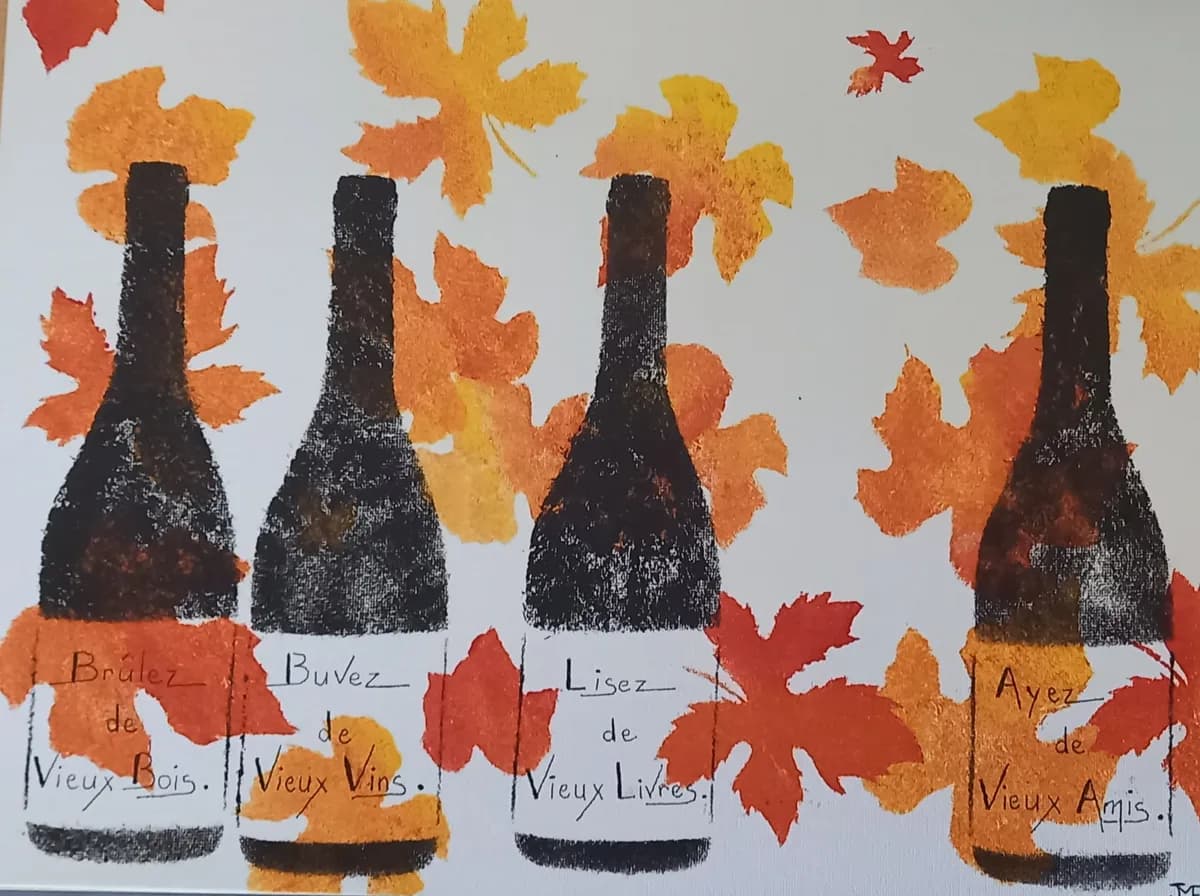 Brûlez
de
Vieux Bois.
Buvez
de
Vieux Vins.
Lisez
de
Vieux Livres.
Ayez
de
Vieux Amis.